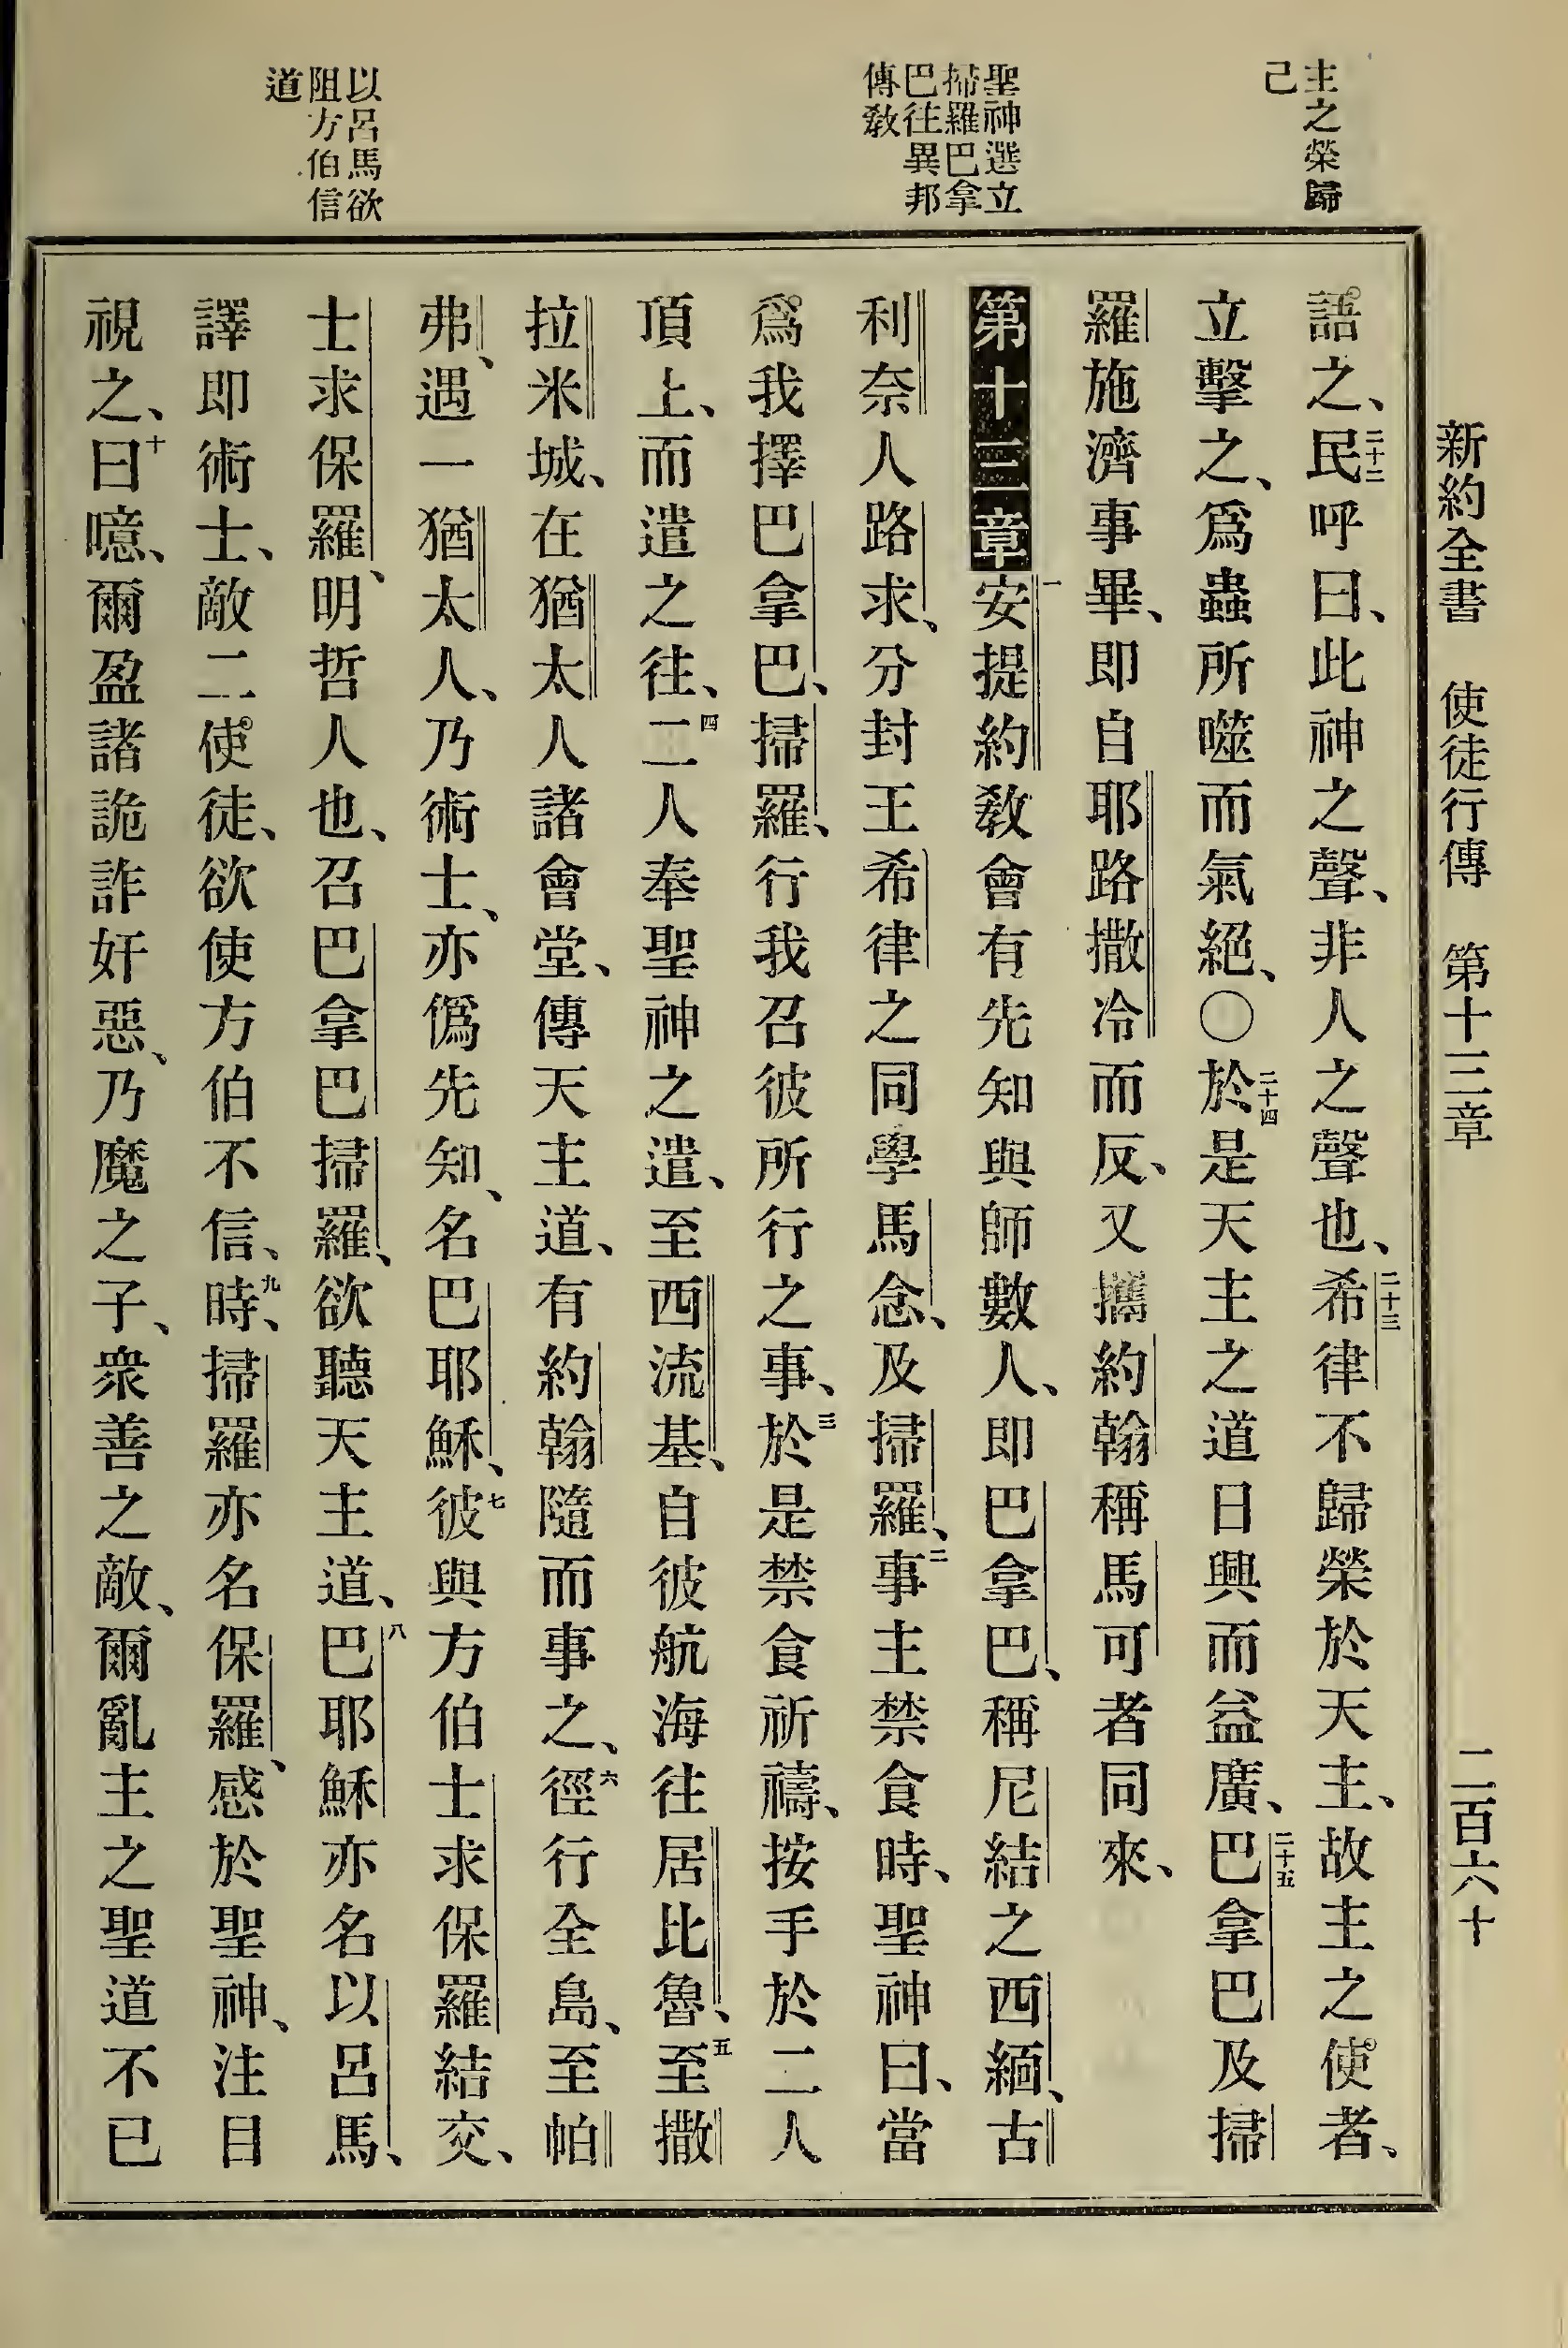 新約全書 使徒行傳 第十三章 二百六十
主之榮歸
己
聖神選立
掃羅巴拿
巴往異邦
傳敎
以呂馬欲
阻方伯信
道
語之、二十二民呼曰、此神之聲、非人之聲也、二十三希律不歸榮於天主、故主之使者、
立擊之、爲蟲所噬而氣絕、〇二十四於是天主之道日興而益廣、二十五巴拿巴及掃
羅施濟事畢、卽自耶路撒冷而反、又攜約翰稱馬可者同來、
第十三章一安提約敎會有先知與師數人、卽巴拿巴、稱尼結之西緬、古
利奈人路求、分封王希律之同學馬念、及掃羅、二事主禁食時、聖神曰、當
爲我擇巴拿巴、掃羅、行我召彼所行之事、三於是禁食祈禱、按手於二人
頂上、而遣之往、四二人奉聖神之遣、至西流基、自彼航海往居比魯、五至撒
拉米城、在猶太人諸會堂、傳天主道、有約翰隨而事之、六徑行全島、至帕
弗、遇一猶太人、乃術士、亦僞先知、名巴耶穌、七彼與方伯士求保羅結交、
士求保羅、明哲人也、召巴拿巴掃羅、欲聽天主道、八巴耶穌亦名以呂馬、
譯卽術士、敵二使徒、欲使方伯不信、九時、掃羅亦名保羅、感於聖神、注目
視之、十曰噫、爾盈諸詭詐奸惡、乃魔之子、衆善之敵、爾亂主之聖道不已